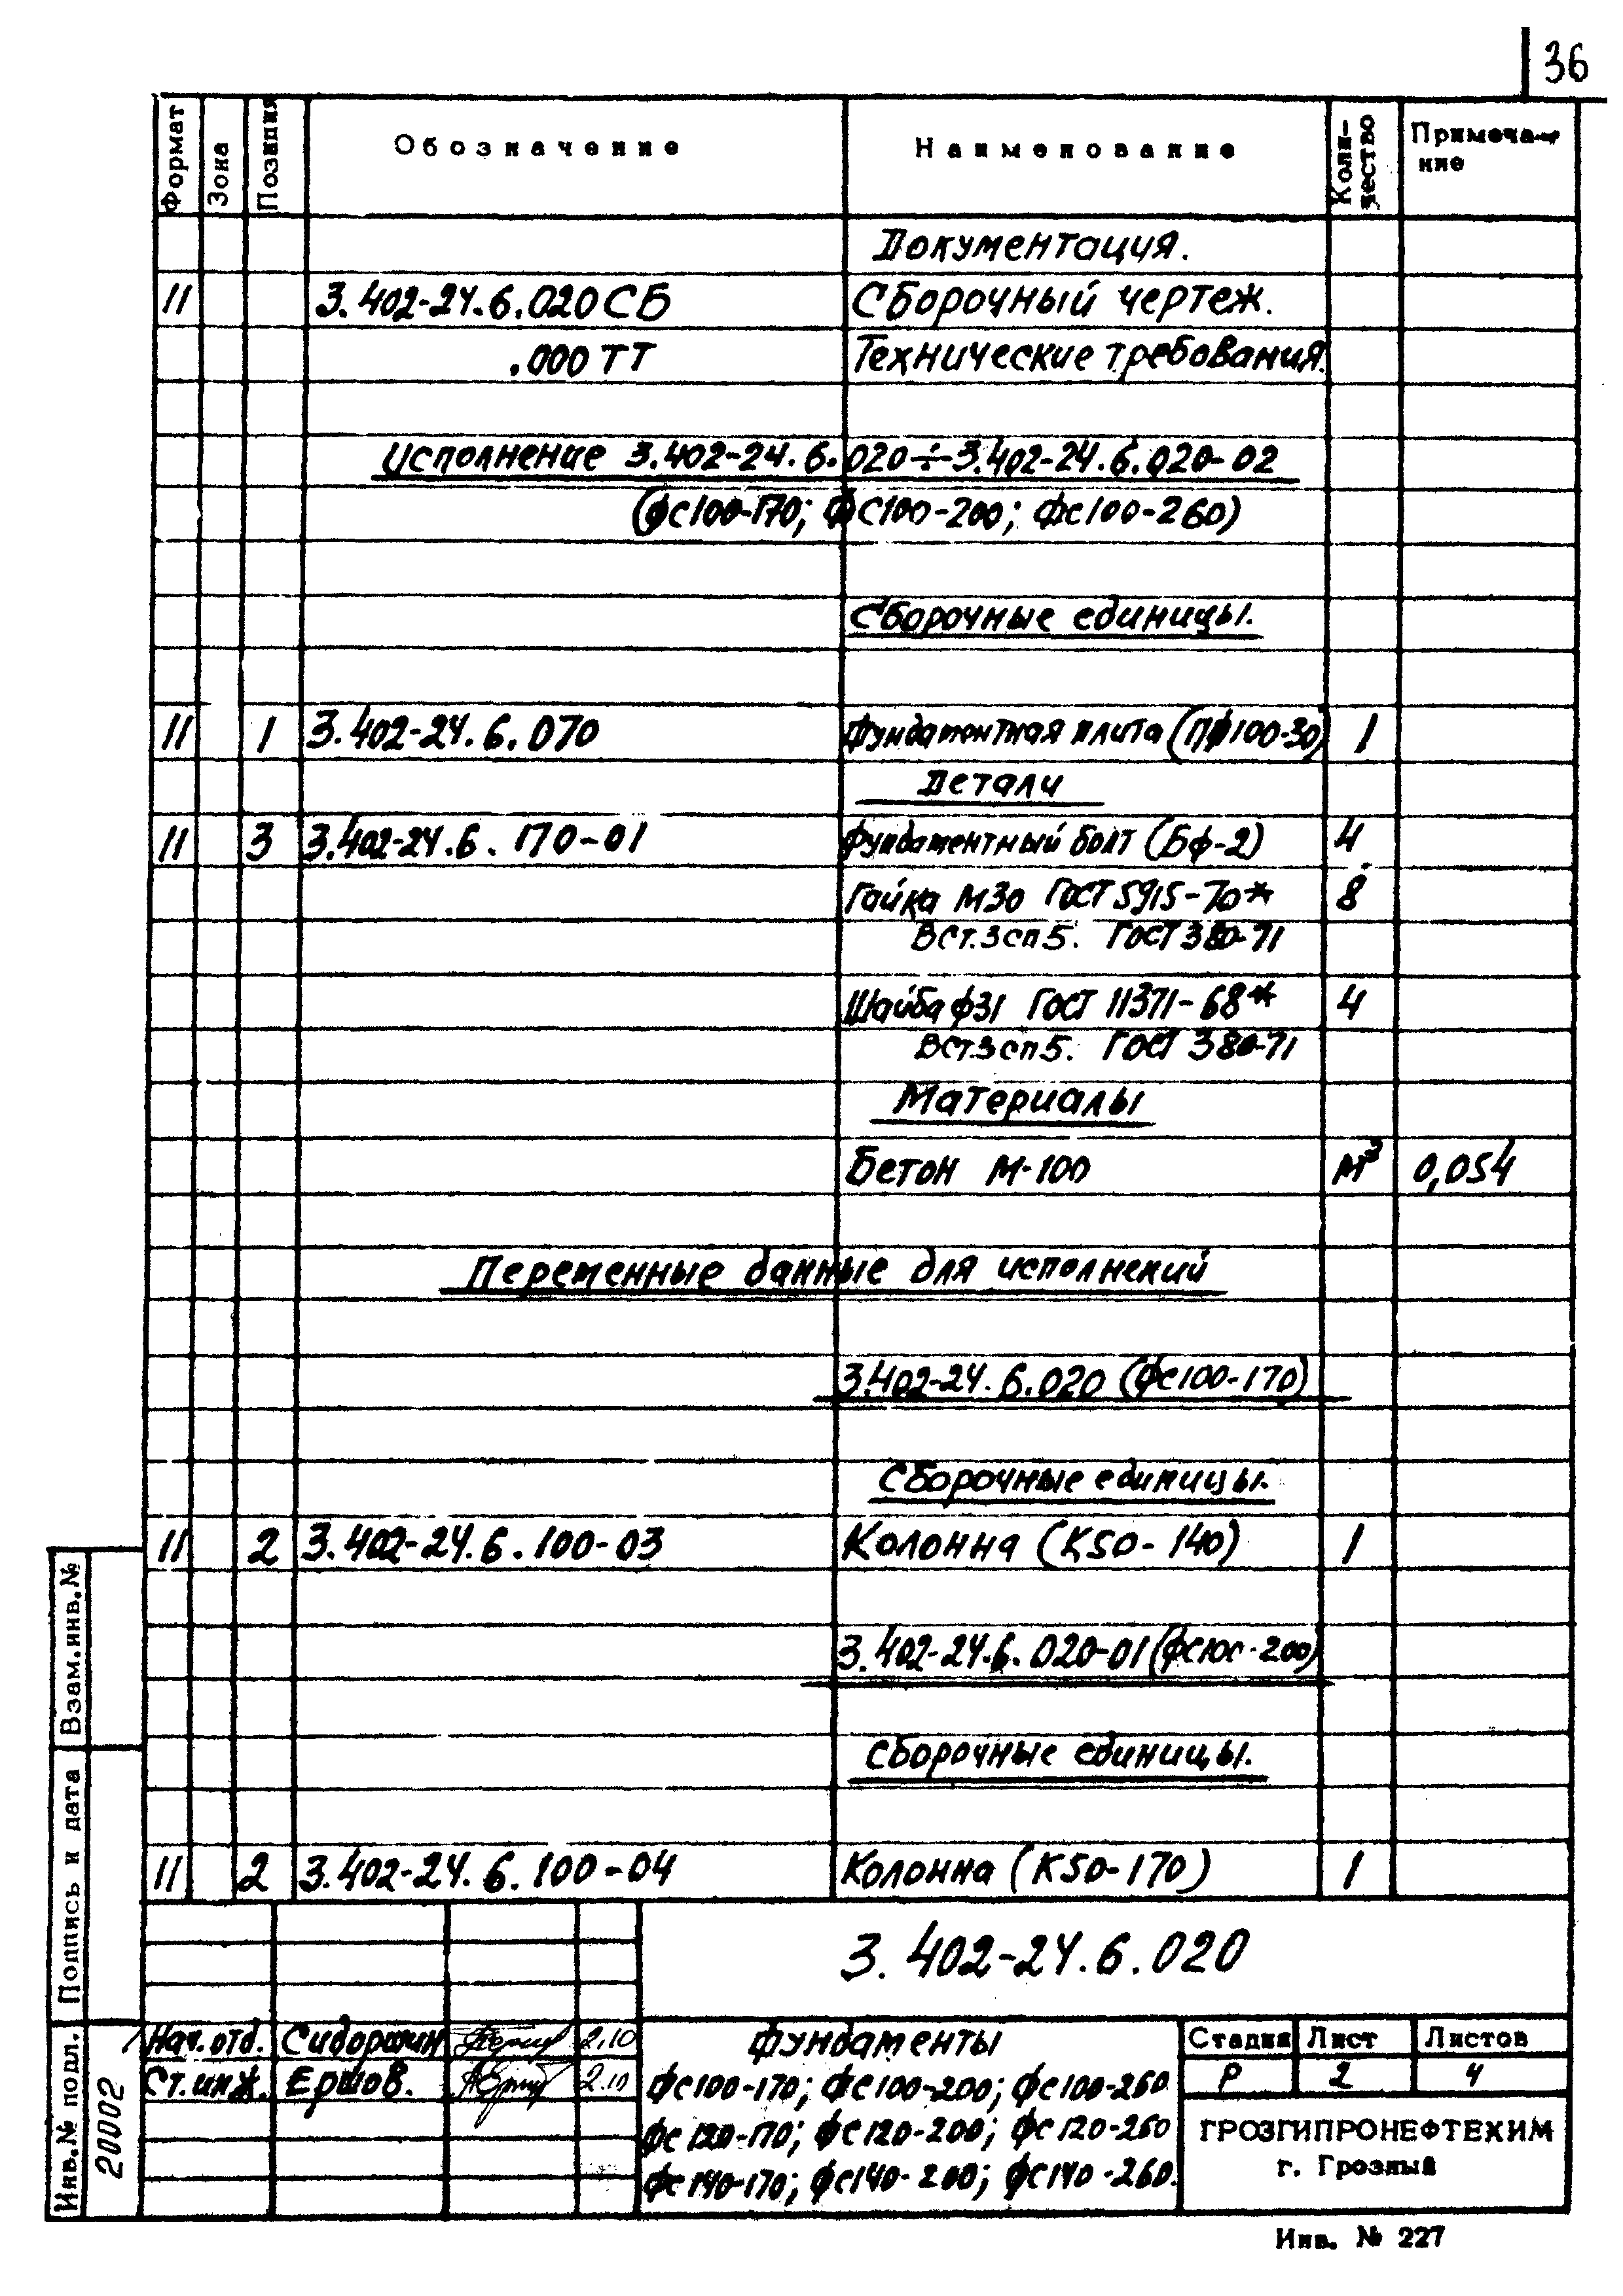 36
Формат Зона Позиция Обозначение Наименование Коли-чество Примеча-ние
Документация.
11 3.402-24.6.020 СБ Сборочный чертеж.
.000 ТТ Технические требования.
Исполнение 3.402-24.6.020÷3.402-24.6.020-02
(ФС100-170; ФС100-200; ФС100-260)
Сборочные единицы.
11 1 3.402-24.6.070 Фундаментная плита (ПФ100-30) 1
Детали
11 3 3.402-24.6.170-01 Фундаментный болт (БФ-2) 4
Гайка М30 ГОСТ 5915-70* 8
ВСт.3сп5. ГОСТ 380-71
Шайба ф31 ГОСТ 11371-68* 4
ВСт.3сп5. ГОСТ 380-71
Материалы
Бетон М-100 м³ 0,054
Переменные данные для исполнений
3.402-24.6.020 (ФС100-170)
Сборочные единицы.
11 2 3.402-24.6.100-03 Колонна (К50-140) 1
3.402-24.6.020-01 (ФС100-200)
Сборочные единицы.
11 2 3.402-24.6.100-04 Колонна (К50-170) 1
3.402-24.6.020
Нач.отд. Сидоршин 2.10
Ст.инж. Ершов. 2.10
Фундаменты
ФС100-170; ФС100-200; ФС100-260
ФС120-170; ФС120-200; ФС120-260
ФС140-170; ФС140-200; ФС140-260.
Стадия Лист Листов
Р 2 4
ГРОЗГИПРОНЕФТЕХИМ
г. Грозный
Взам.инв.№
Поппись и дата
Инв.№ подл.
20002
Инв. № 227